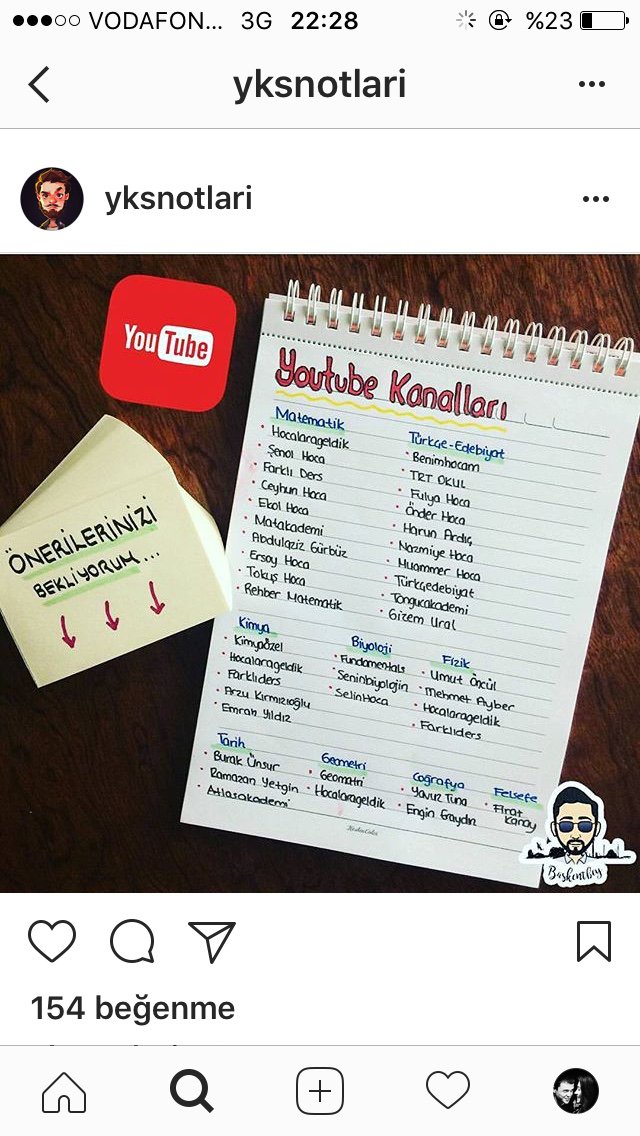 VODAFON... 3G 22:28 %23
yksnotlari
yksnotlari
YouTube
Youtube Kanalları
Matematik
Hocalarageldik
Şenol Hoca
Farklı Ders
Ceyhun Hoca
Ekol Hoca
Matakademi
Abdulaziz Gürbüz
Ersoy Hoca
Tokuş Hoca
Rehber Matematik
Türkçe-Edebiyat
Benimhocam
TRT OKUL
Fulya Hoca
Önder Hoca
Harun Ardıç
Nazmiye Hoca
Muammer Hoca
Türkgedebiyat
Tonguçakademi
Gizem Ural
ÖNERİLERİNİZİ
BEKLİYORUM...
Kimya
Kimyaözel
Hocalarageldik
Farklıders
Arzu Kırmızıoğlu
Emrah Yıldız
Biyoloji
Fundamentals
Seninbiyolojin
SelinHoca
Fizik
Umut Öncül
Mehmet Ayber
Hocalarageldik
Farklıders
Tarih
Burak Ünsur
Ramazan Yetgin
Atlasakademi
Geometri
Geomatri
Hocalarageldik
Coğrafya
Yavuz Tuna
Engin Eraydın
Felsefe
Fırat
Kanay
Başkentbey
154 beğenme